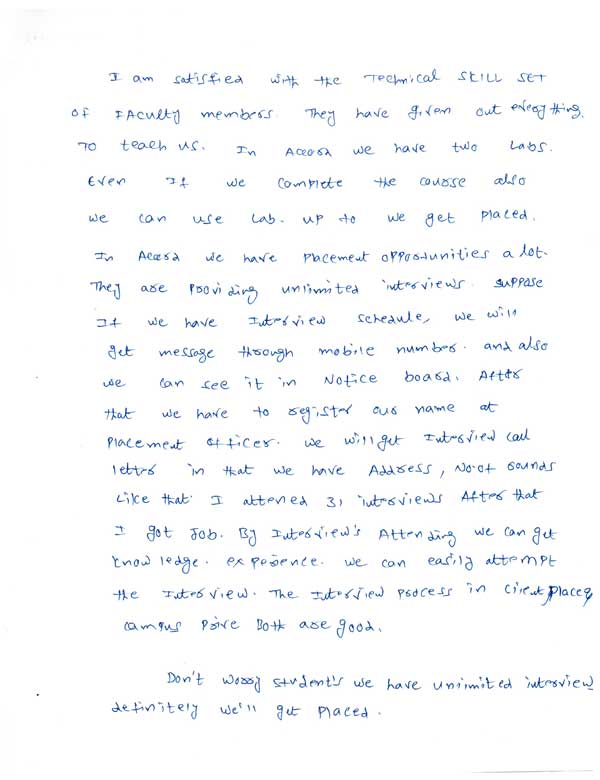 I am satisfied with the Technical SKILL SET
OF FAculty members. They have given out everything.
TO teach us. In Accord we have two Labs.
Even If we complete the course also
we can use Lab. up to we get placed.
In Accord we have placement opportunities a lot.
They are providing unlimited interviews. suppose
If we have Interview schedule, we will
get message through mobile number. and also
we can see it in Notice board. After
that we have to register our name at
placement officer. we will get Interview call
letter in that we have Address, No.of rounds
Like that. I attened 3, interviews After that
I got Job. By Interview's Attending we can get
knowledge. experience. we can easily attempt
the Interview. The Interview process in client places
campus Drive Both are good.
Don't worry student's we have unlimited interview
definitely we'll get placed.